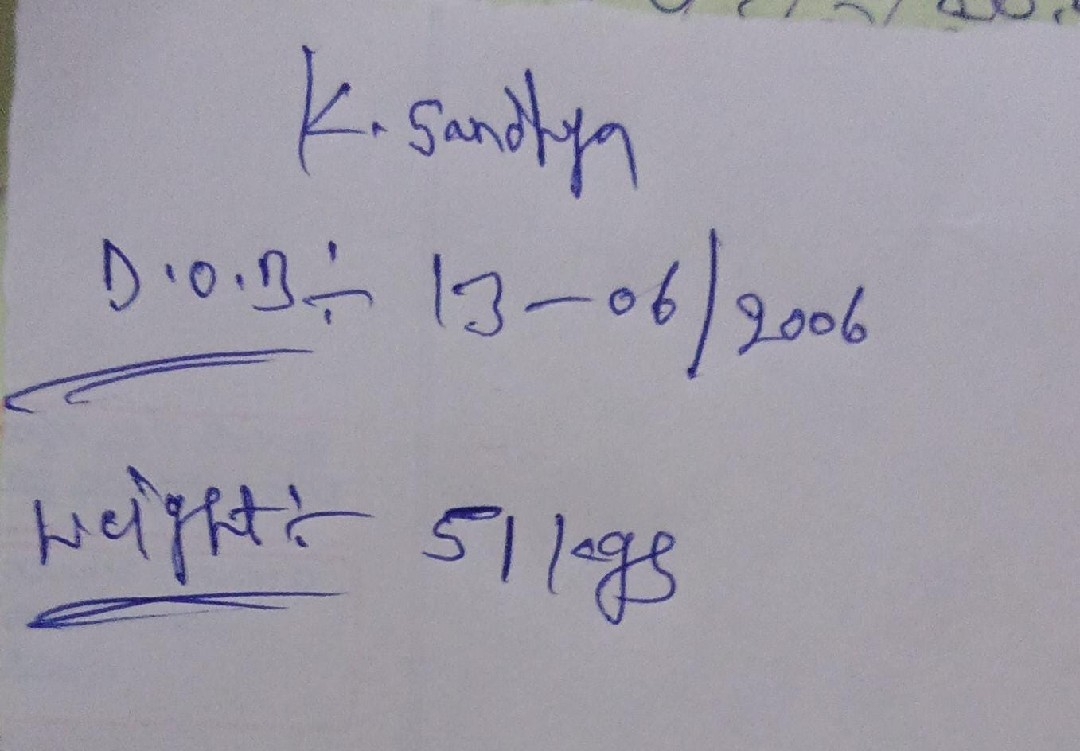 K. Sandhya
D.O.B:- 13-06/2006
Weight:- 51 kgs